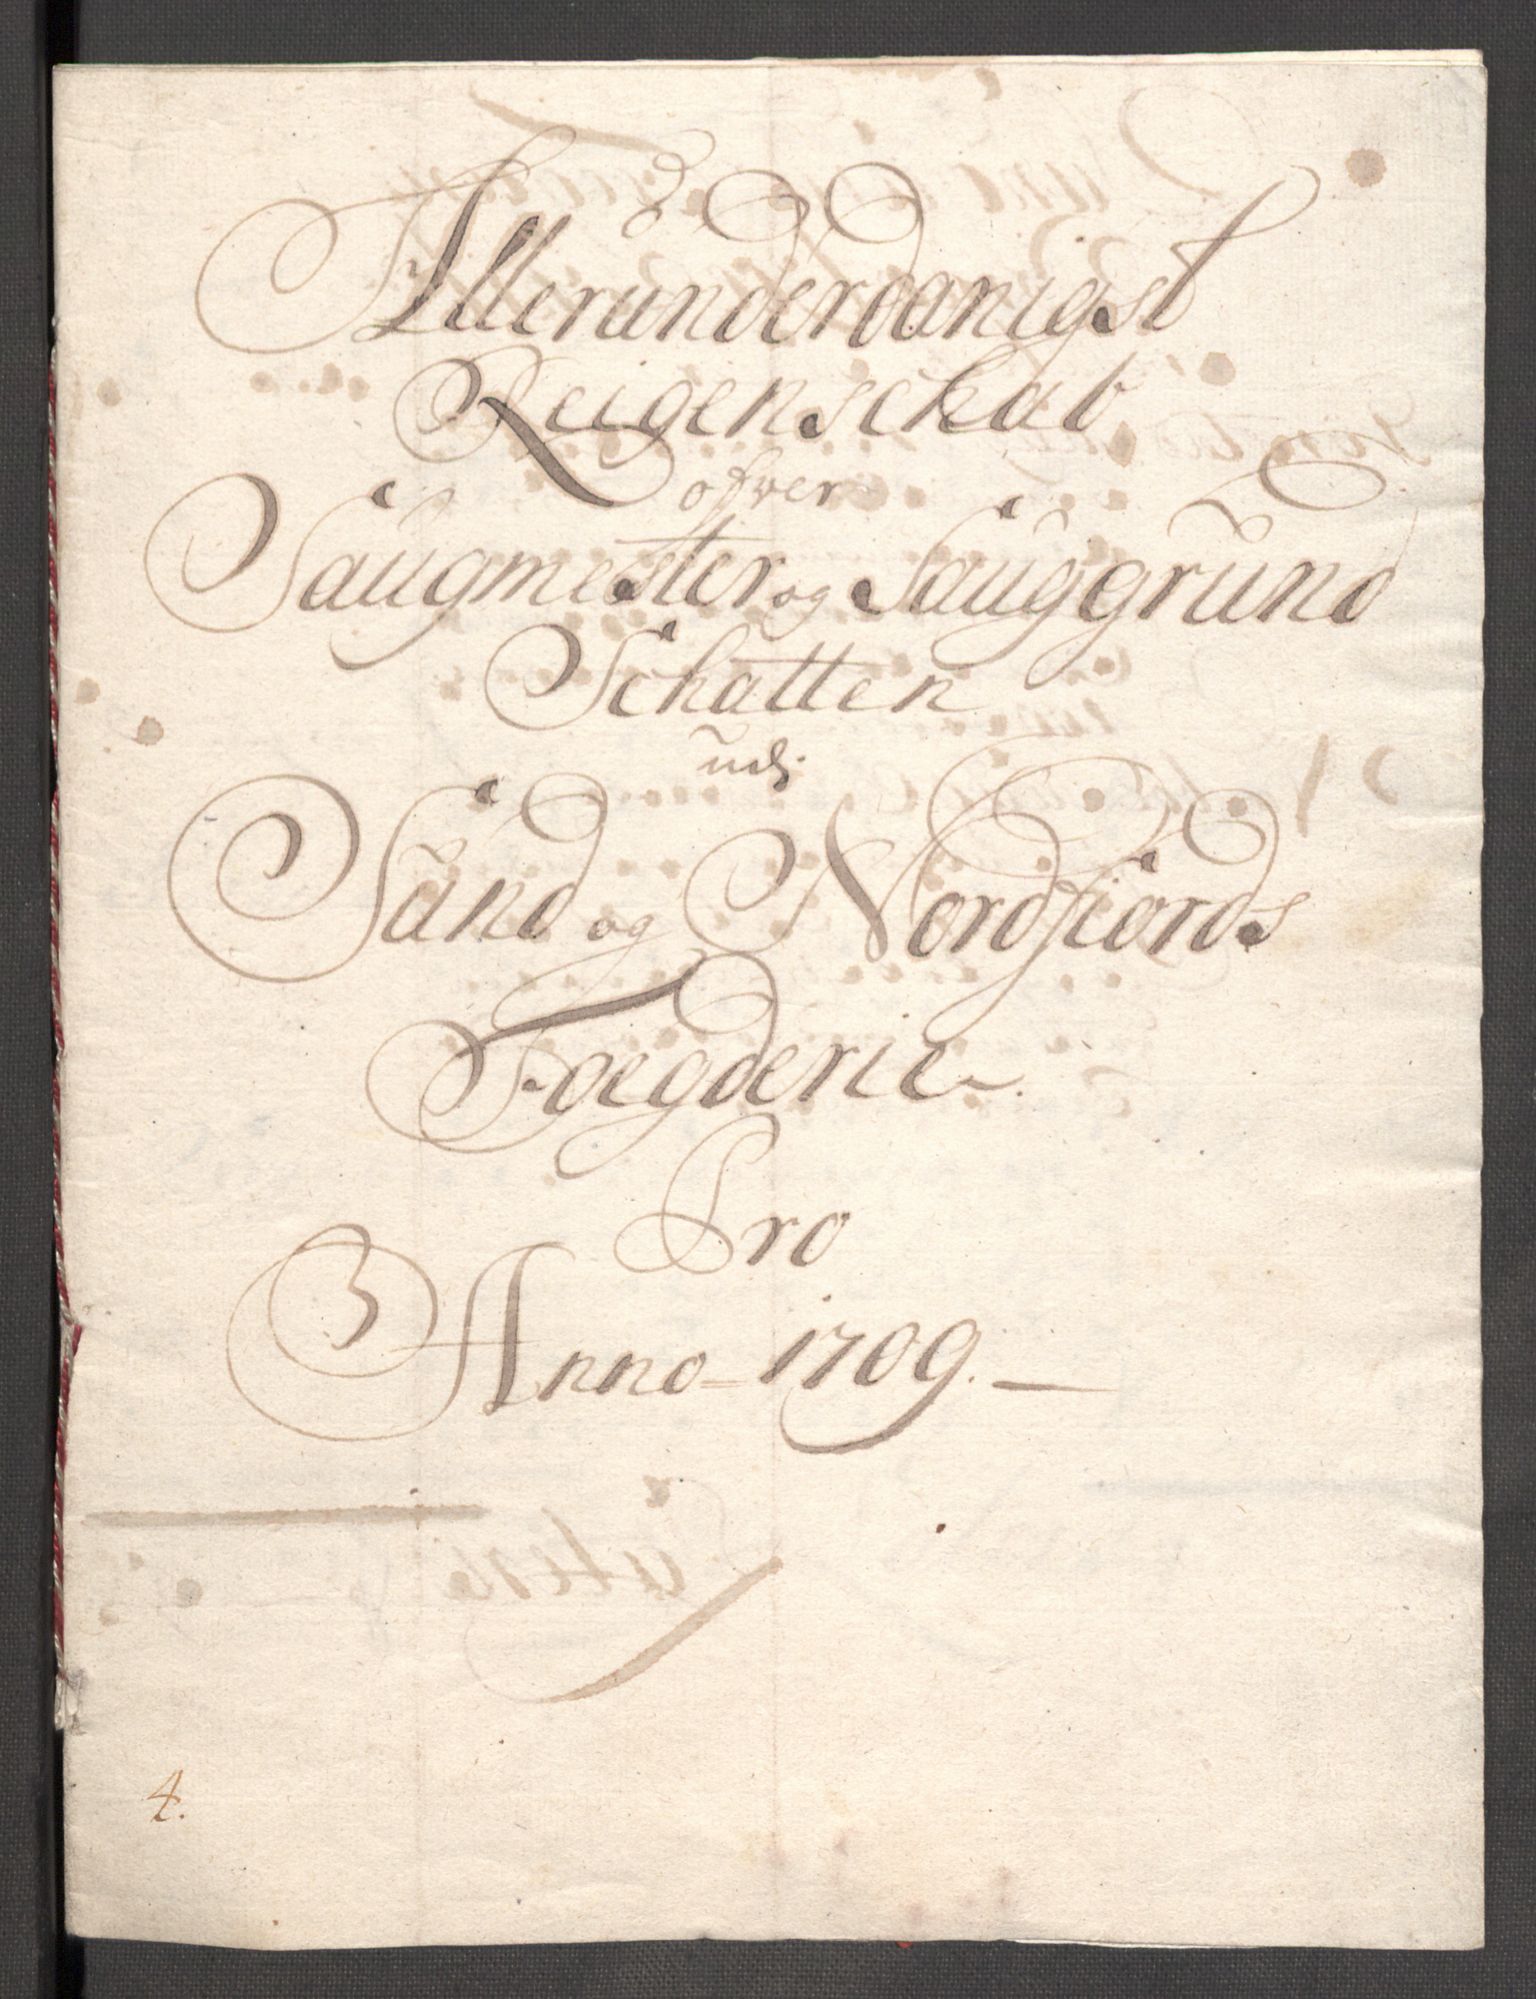 Allerunderdanigst
Reigenschab
ofver
Saugmester og Sauggrund
Schatten
udj
Sund og Nordfiords
Foegderie
Pro
Anno 1709.
4.